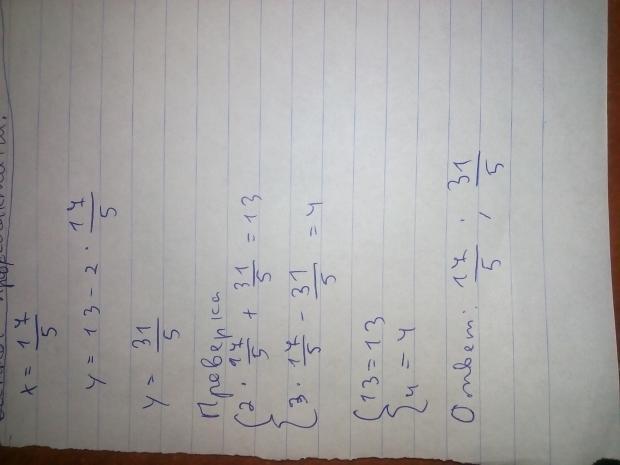 x = 17/5
y = 13 - 2 · 17/5
y = 31/5
Проверка
{ 2 · 17/5 + 31/5 = 13
{ 3 · 17/5 - 31/5 = 4
{ 13 = 13
{ 4 = 4
Ответ: 17/5 ; 31/5